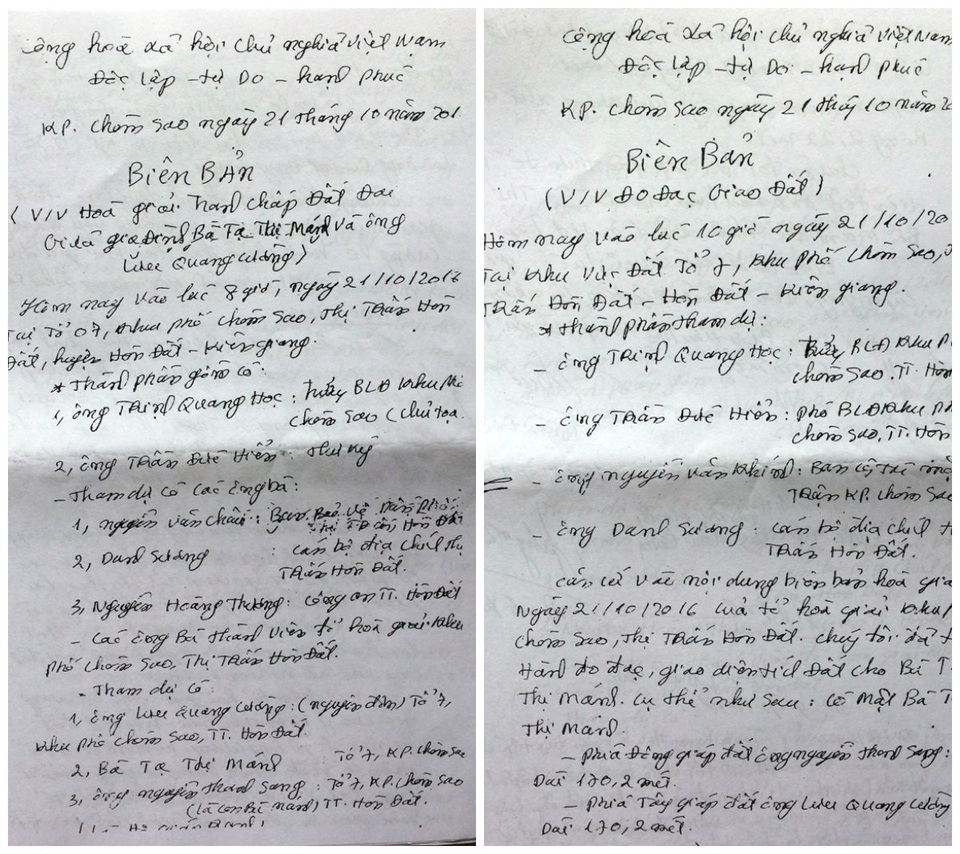 Cộng hoà xã hội chủ nghĩa việt Nam
Độc lập - tự Do - hạnh phúc
KP. Chòm Sao ngày 21 tháng 10 năm 201
Biên BẢN
( V/V Hoà giải Tranh Chấp Đất Đai
Giữa gia Đình Bà Tạ Thị Mánh và ông
Lưu Quang Cường)
Hôm nay vào lúc 8 giờ, ngày 21/10/2016
Tại Tổ 07, khu phố Chòm Sao, Thị Trấn Hòn
Đất, huyện Hòn Đất - Kiên giang.
* Thành phần gồm có:
1, ông Trịnh Quang Học : Trưởng BLĐ khu phố
Chòm Sao (Chủ tọa.
2, ông Trần Đức Hiển : Thư ký
- Tham dự có các ông bà:
1, nguyễn văn : Ban Bảo vệ
Thị Trấn Hòn Đất
2, Danh Sương : cán bộ địa chính thị
Trấn Hòn Đất.
3, Nguyễn Hoàng Thương: Công an TT. Hòn Đất
- Các ông Bà thành viên tổ hoà giải khu
phố Chòm Sao, Thị Trấn Hòn Đất.
- Tham dự có
1, ông Lưu Quang Cường: (nguyên đơn) Tổ 7,
khu phố Chòm Sao, TT. Hòn Đất
2, Bà Tạ Thị Mánh Tổ 7, KP. Chòm Sao
3, ông nguyễn thanh Sang : Tổ 7, KP. Chòm Sao
(là con Bà Mánh) TT. Hòn Đất.
Cộng hoà xã hội chủ nghĩa việt Nam
Độc lập - tự Do - hạnh phúc
KP. Chòm Sao ngày 21 tháng 10 năm 2
Biên Bản
( V/V Đo Đạc Giao Đất )
Hôm nay vào lúc 10 giờ ngày 21/10/20
Tại khu vực Đất Tổ 7, khu phố Chòm Sao,
Trấn Hòn Đất - Hòn Đất - Kiên giang.
* Thành phần tham dự:
- ông Trịnh Quang Học : Trưởng BLĐ khu P
Chòm Sao, TT. Hòn
- ông Trần Đức Hiển : phó BLĐ khu ph
Chòm Sao, TT. Hòn
- ông nguyễn văn khính : Ban công tác mặt
Trận KP. Chòm Sao
- ông Danh Sương : cán bộ địa chính t
Trấn Hòn Đất.
Căn cứ vào nội dung biên bản hoà giả
Ngày 21/10/2016 của tổ hoà giải khu
Chòm Sao, Thị Trấn Hòn Đất. Chúng tôi đã t
Hành đo đạc, giao diện tích Đất cho Bà T
Thị Mánh. Cụ thể như sau : có mặt Bà T
Thị Mánh.
- Phía Đông giáp đất ông nguyễn thanh Sang :
Dài 170,2 mét.
- Phía Tây giáp đất ông Lưu Quang Cường
Dài 170,2 mét.